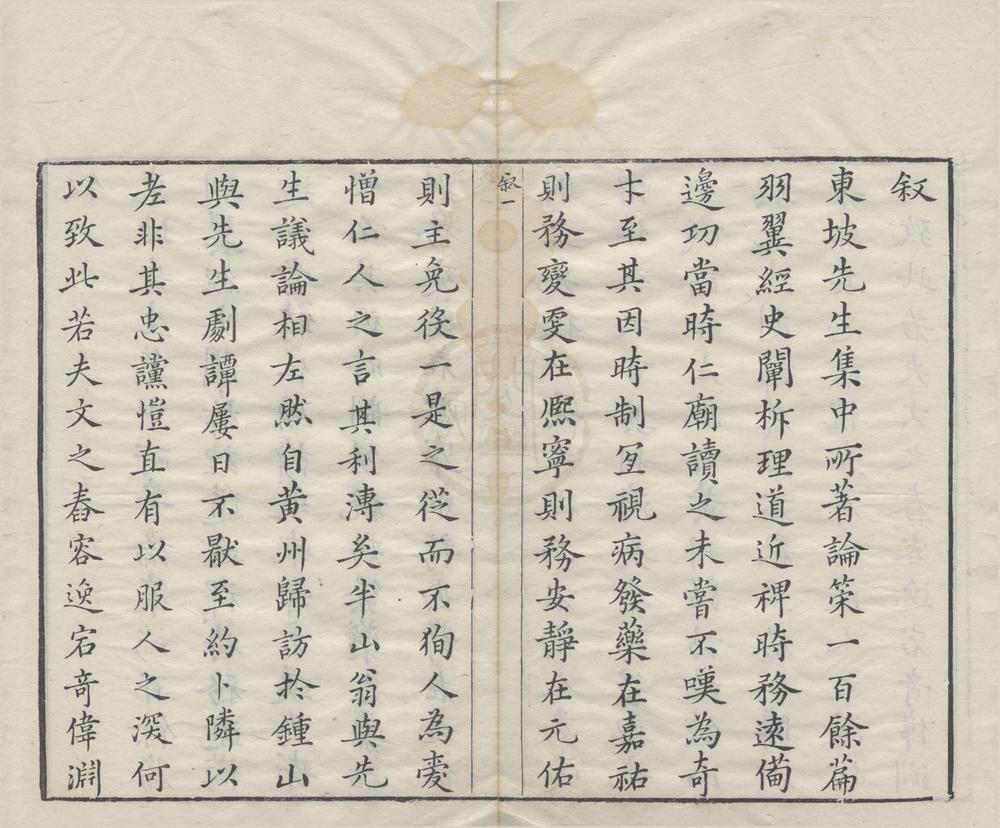 叙
東坡先生集中所著論策一百餘篇
羽翼經史闡析理道近裨時務遠備
邊功當時仁廟讀之未嘗不嘆為奇
才至其因時制宜視病發藥在嘉祐
則務變更在熈寧則務安靜在元佑
叙一
則主免役一是之從而不狥人為愛
憎仁人之言其利溥矣半山翁與先
生議論相左然自黄州歸訪於鍾山
與先生劇譚屢日不厭至約卜隣以
老非其忠讜愷直有以服人之深何
以致此若夫文之舂容逸宕奇偉淵